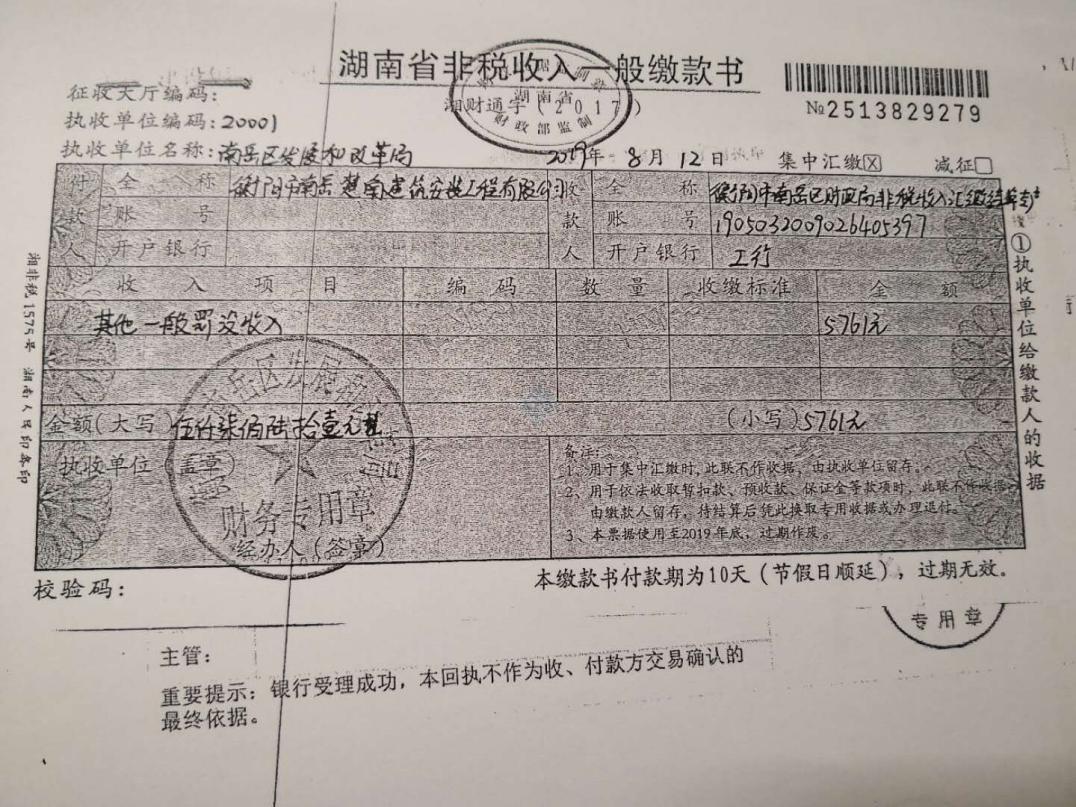 湖南省非税收入一般缴款书
湘财通字(2017)
湖南省
财政部监制
№2513829279
征收大厅编码:
执收单位编码:20001
执收单位名称:南岳区发展和改革局
2019年8月12日 集中汇缴☒ 减征☐
付款人 全称 衡阳市南岳楚南建筑安装工程有限公司 收款人 全称 衡阳市南岳区财政局非税收入汇缴结算专户
账号 账号 1905032009026405397
开户银行 开户银行 工行
收入项目 编码 数量 收缴标准 金额
其他一般罚没收入 5761元
金额(大写)伍仟柒佰陆拾壹元整 (小写)5761元
执收单位(盖章)
财务专用章
经办人(签章)
备注:
1、用于集中汇缴时,此联不作收据,由执收单位留存。
2、用于依法收取暂扣款、预收款、保证金等款项时,此联不作收据,
由缴款人留存,待结算后凭此换取专用收据或办理退付。
3、本票据使用至2019年底,过期作废。
①执收单位给缴款人的收据
湘非税1575号 湖南人民印务印
校验码:
本缴款书付款期为10天(节假日顺延),过期无效。
专用章
主管:
重要提示:银行受理成功,本回执不作为收、付款方交易确认的
最终依据。